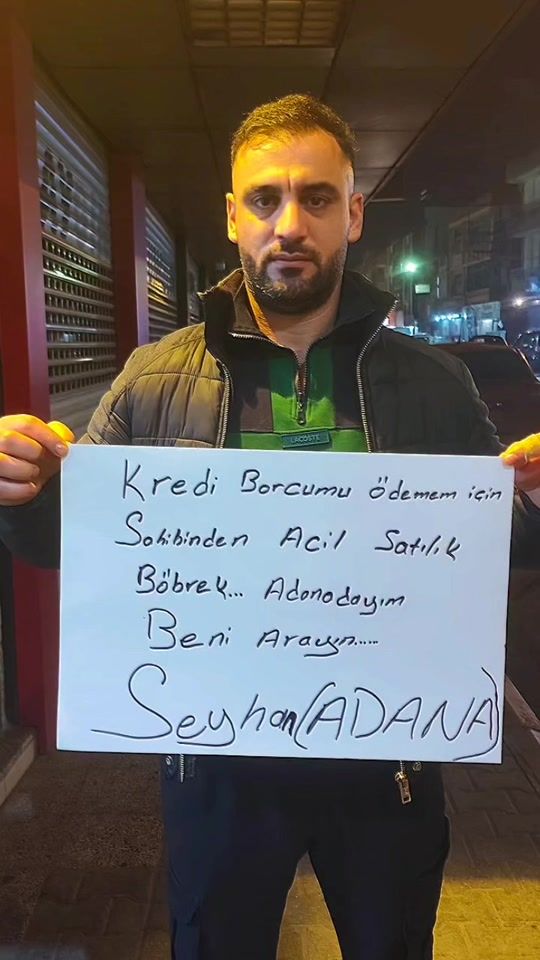 LACOSTE
Kredi Borcumu ödemem için
Sahibinden Acil Satılık
Böbrek... Adanadayım
Beni Arayın.....
Seyhan (ADANA)